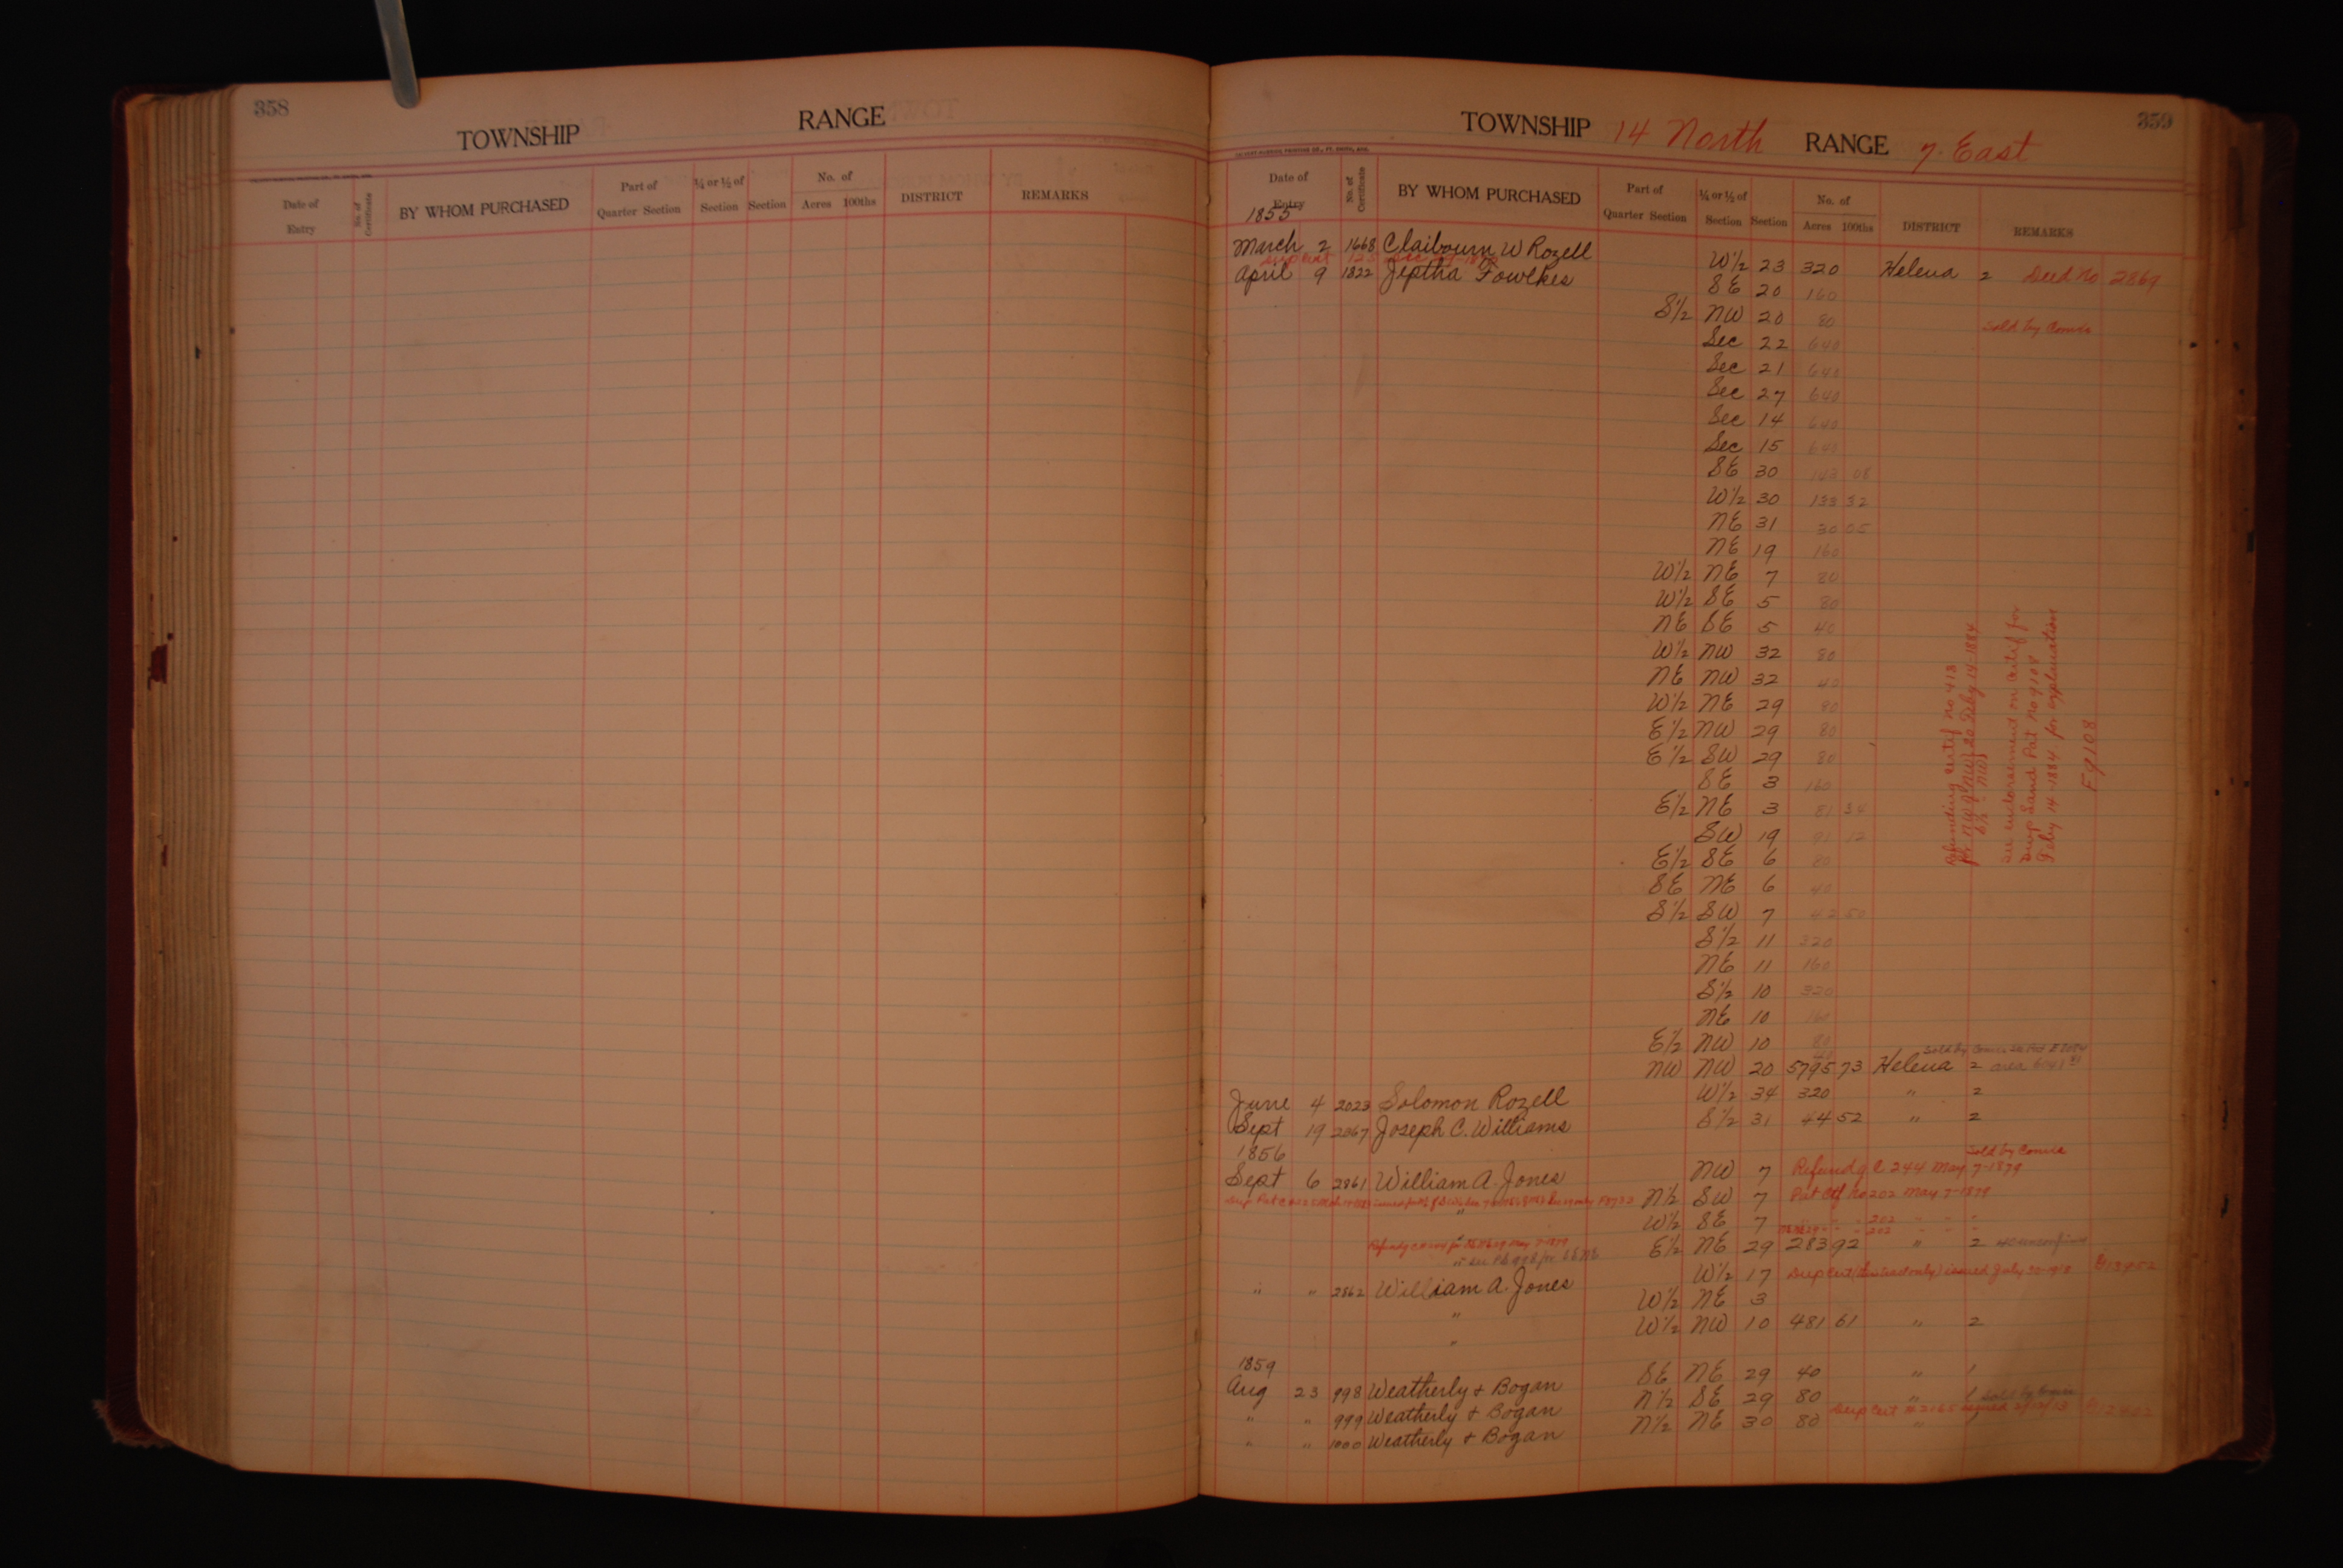 358
TOWNSHIP RANGE
Date of Entry No. of Certificate BY WHOM PURCHASED Part of Quarter Section ¼ or ½ of Section Section No. of Acres 100ths DISTRICT REMARKS
359
TOWNSHIP 14 North RANGE 7 East
Date of Entry No. of Certificate BY WHOM PURCHASED Part of Quarter Section ¼ or ½ of Section Section No. of Acres 100ths DISTRICT REMARKS
1855
March 2 1668 Claibourn W Rozell W½ 23 320 Helena 2 Deed No 2869
April 9 1822 Jeptha Fowlkes SE 20 160
S½ NW 20 80 Sold by Comis
Sec 22 640
Sec 21 640
Sec 27 640
Sec 14 640
Sec 15 640
SE 30 143 08
W½ 30 133 32
NE 31 30 05
NE 19 160
W½ NE 7 80
W½ SE 5 80
NE SE 5 40
W½ NW 32 80
NE NW 32 40
W½ NE 29 80
E½ NW 29 80
E½ SW 29 80
SE 3 160
E½ NE 3 81 34
SW 19 91 12
E½ SE 6 80
SE NE 6 40
S½ SW 7 42 50
S½ 11 320
NE 11 160
S½ 10 320
NE 10 160
E½ NW 10 80
NW NW 20 5795 73 Helena 2
Refunding certif no 413
Feby 14-1884
See endorsement on certif for
Swamp Land Pat No 9108
Feby 14-1884 for explanation
F9108
June 4 2023 Solomon Rozell W½ 34 320 " 2
Sept 19 2367 Joseph C. Williams S½ 31 44 52 " 2
1856
Sold by Comis
Sept 6 2861 William A. Jones NW 7 Refundg C 244 May 7-1879
" N½ SW 7 Pat Ctf No 202 May 7-1879
" W½ SE 7
E½ NE 29 283 92 " 2
" " 2862 William A. Jones W½ 17 Dup Cert issued July
" W½ NE 3
" W½ NW 10 481 61 " 2
1859
Aug 23 998 Weatherly & Bogan SE NE 29 40 " 1
" " 999 Weatherly & Bogan N½ SE 29 80 " 1
" " 1000 Weatherly & Bogan N½ NE 30 80 "